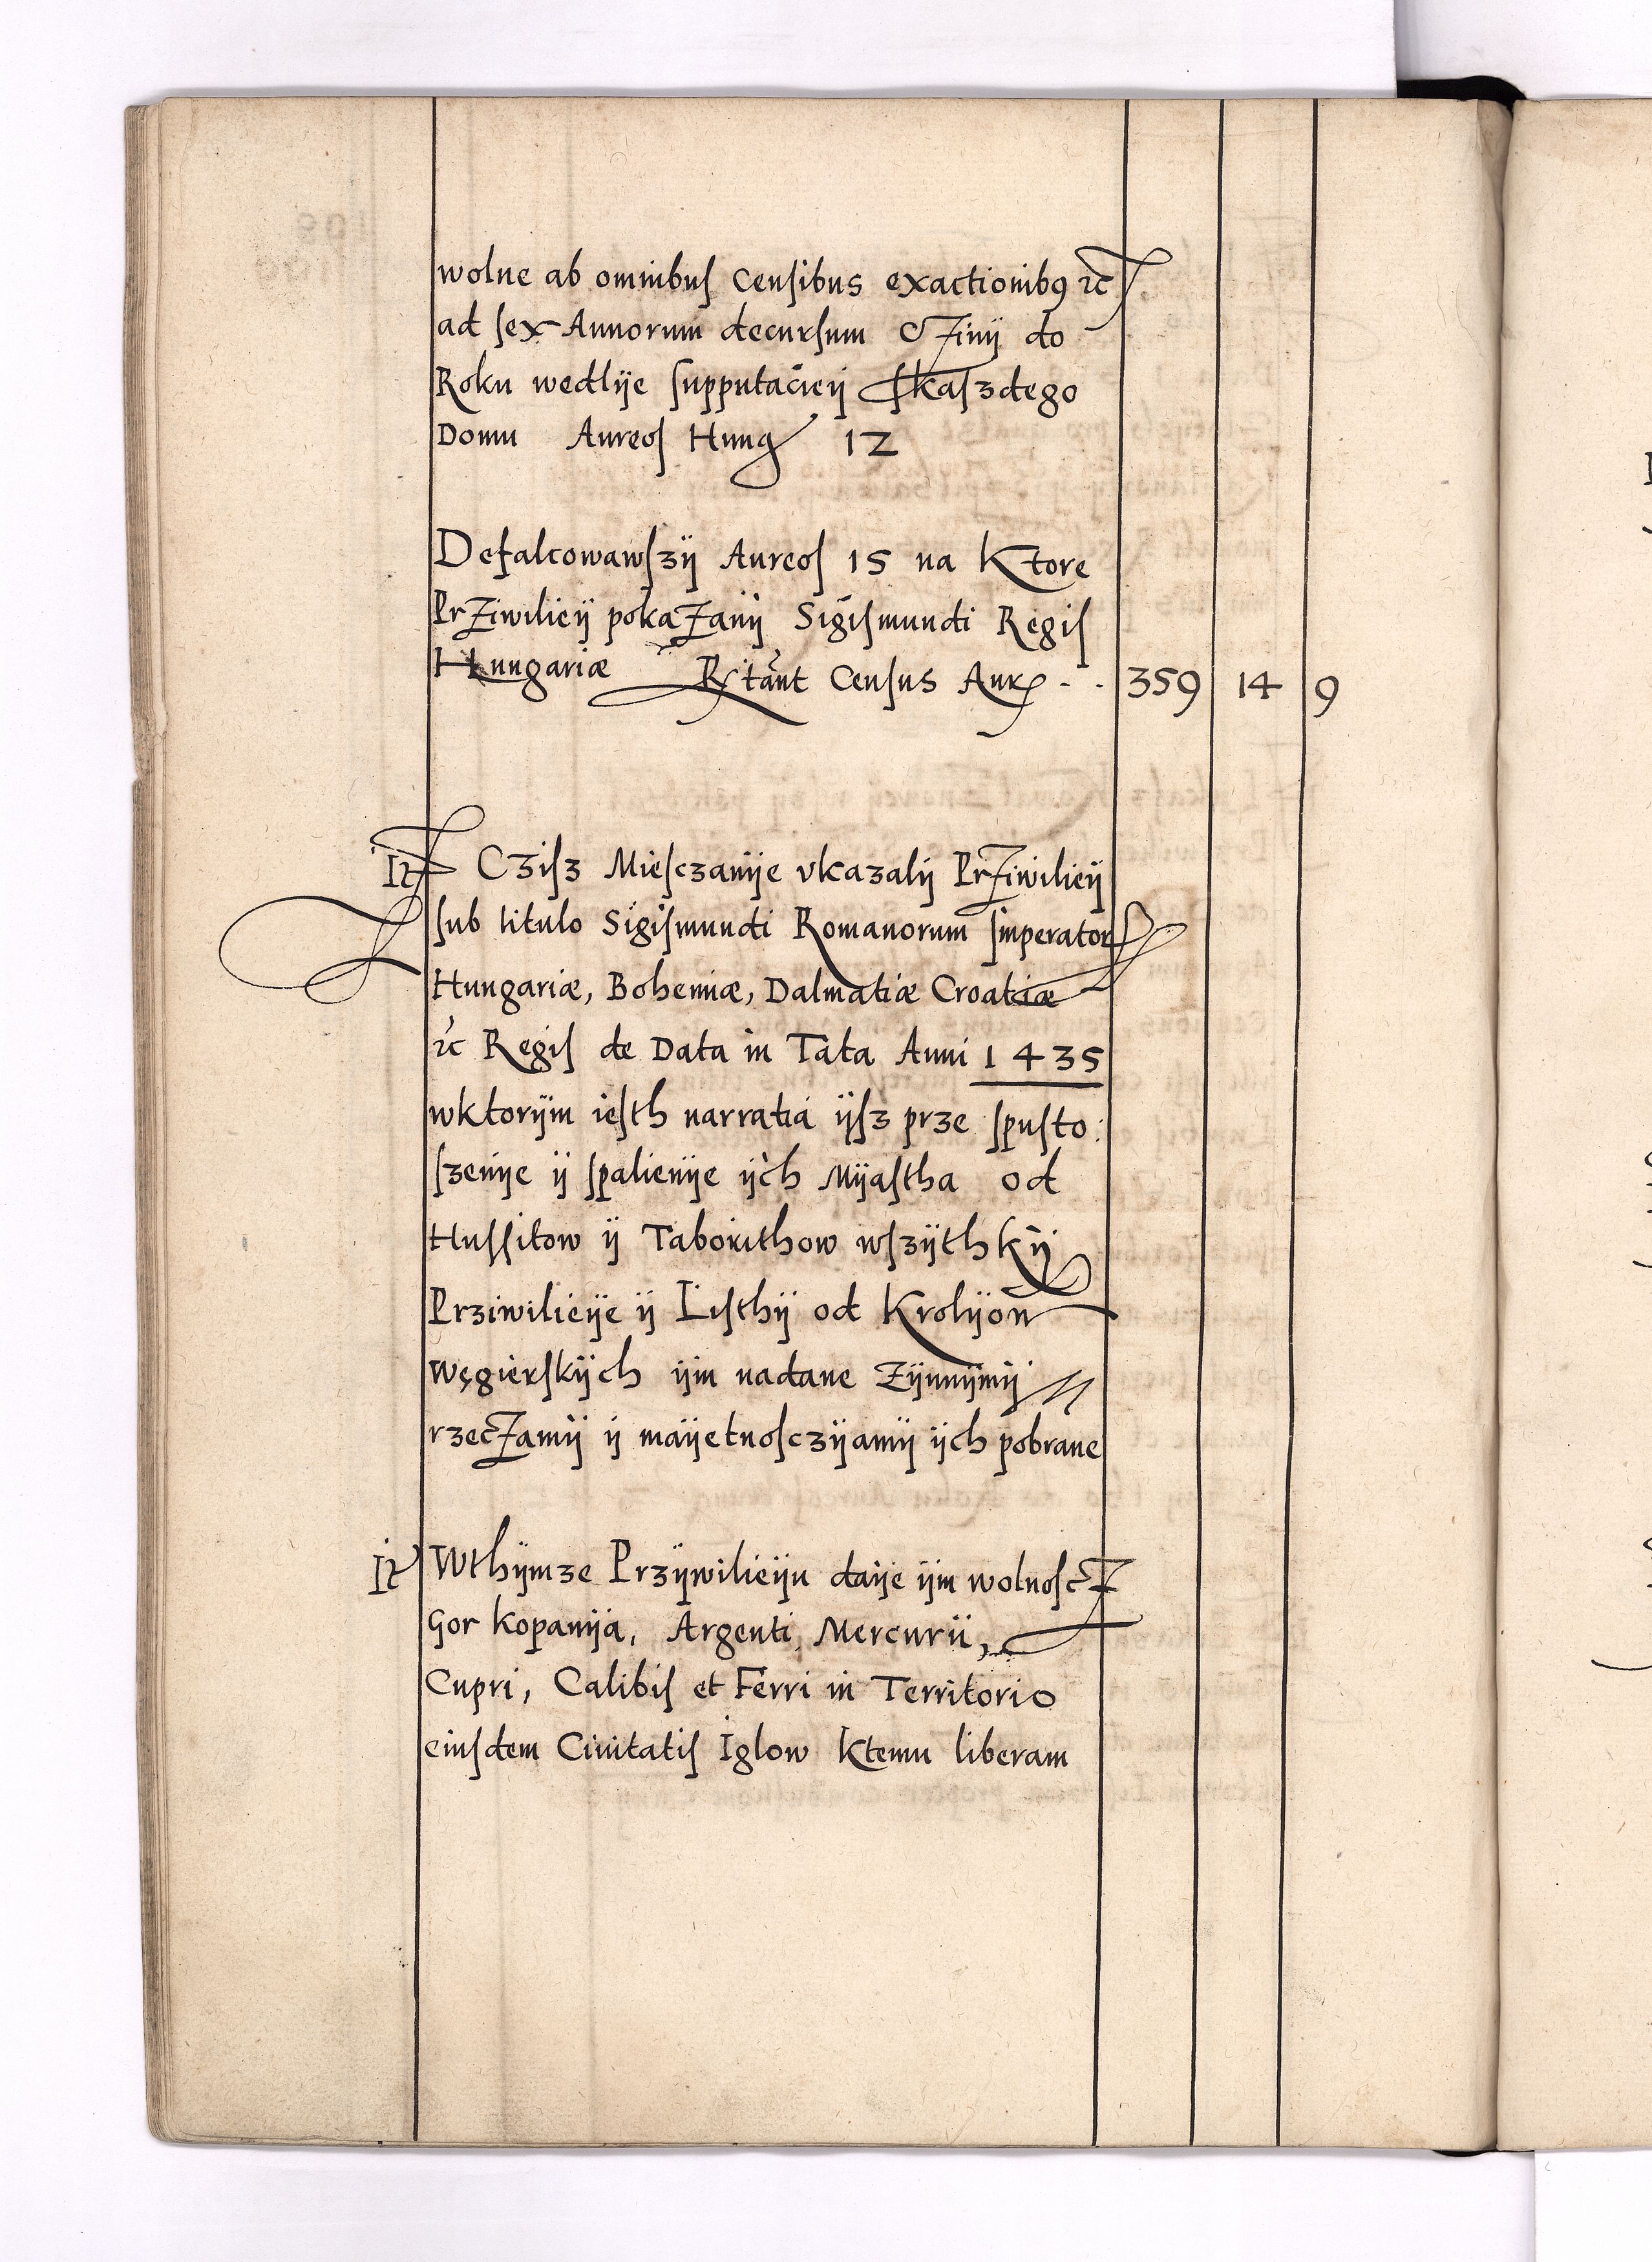 wolne ab omnibus Censibus exactionibꝰ ꝛc
ad sex Annorum decursum Czinÿ do
Roku wedlÿe supputacieÿ skaszdego
Domu Aureos Hung 12
Defalcowawszÿ Aureos 15 na Ktore
Prziwilieÿ pokazanÿ Sigismundi Regis
Hungariæ Rstant Census Aur - - 359 14 9
It Czisz Miesczanÿe vkazalÿ Prziwilieÿ
sub titulo Sigismundi Romanorum Imperator
Hungariæ, Bohemiæ, Dalmatiæ Croatiæ
ꝛc Regis de Data in Tata Anni 1435
wktorÿm iesth narratia ÿsz prze spusto:
szenÿe ÿ spalienÿe ÿch Mÿastha od
Hussitow ÿ Taborithow wszÿthkÿ
Prziwilieÿe ÿ Listhÿ od Krolÿow
Węgierskÿch ÿm nadane Zÿnnÿmÿ
rzeczamÿ ÿ maÿetnosczÿamÿ ÿch pobrane
It Wthÿmze Przÿwilieÿu daÿe ÿm wolnoscz
Gor kopanÿa, Argenti, Mercurii,
Cupri, Calibis et Ferri in Territorio
eiusdem Ciuitatis Iglow ktemu liberam